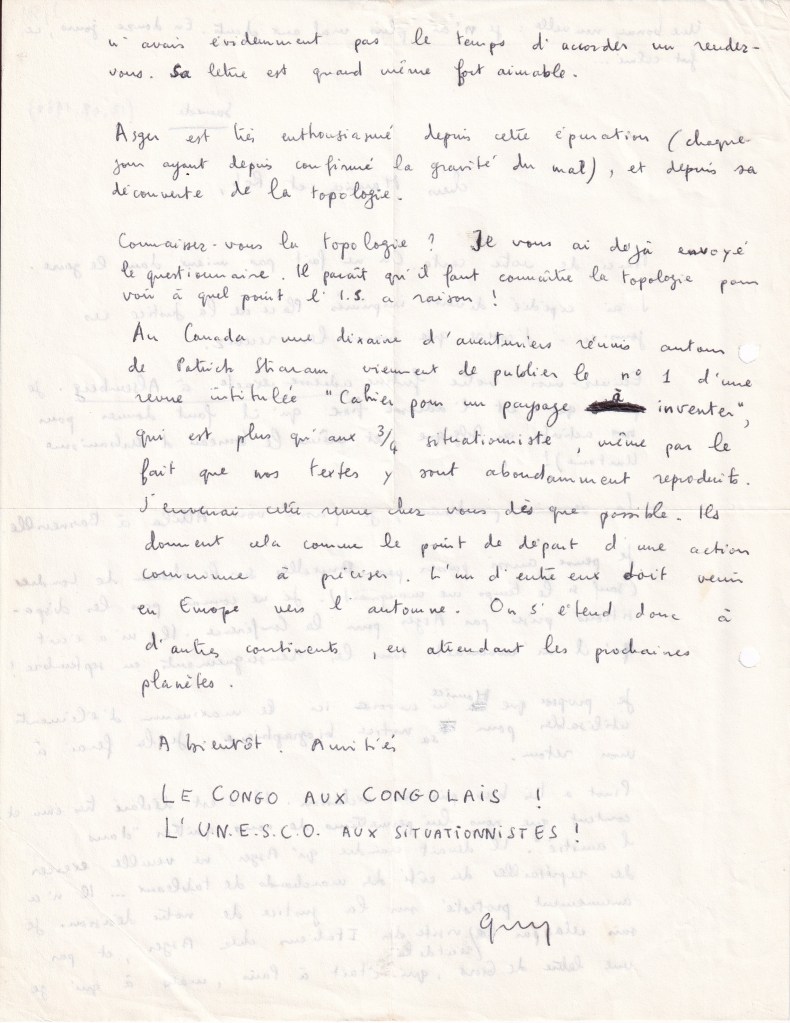 n'avais évidemment pas le temps d'accorder un rendez-
vous. Sa lettre est quand même fort aimable.
Asger est très enthousiasmé depuis cette épuration (chaque
jour ayant depuis confirmé la gravité du mal), et depuis sa
découverte de la topologie.
Connaissez-vous la topologie ? Je vous ai déjà envoyé
le questionnaire. Il paraît qu'il faut connaître la topologie pour
voir à quel point l'I.S. a raison !
Au Canada une dixaine d'aventuriers réunis autour
de Patrick Straram viennent de publier le n° 1 d'une
revue intitulée "Cahier pour un paysage à inventer",
qui est plus qu'aux 3/4 situationniste, même par le
fait que nos textes y sont abondamment reproduits.
J'enverrai cette revue chez vous dès que possible. Ils
donnent cela comme le point de départ d'une action
commune à préciser. L'un d'entre eux doit venir
en Europe vers l'automne. On s'étend donc à
d'autres continents, en attendant les prochaines
planètes.
A bientôt. Amitiés
LE CONGO AUX CONGOLAIS !
L'U.N.E.S.C.O. AUX SITUATIONNISTES !
Guy